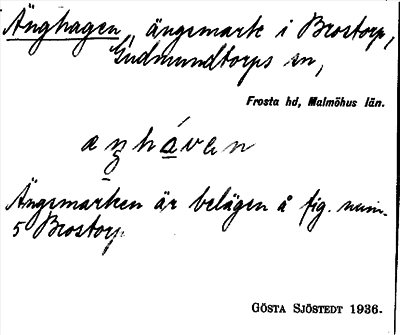 Änghagen, ängsmark i Brostorp,
Gudmundtorps sn,
Frosta hd, Malmöhus län.
aŋháven
Ängsmarken är belägen å fig. num.
5 Brostorp.
GÖSTA SJÖSTEDT 1936.